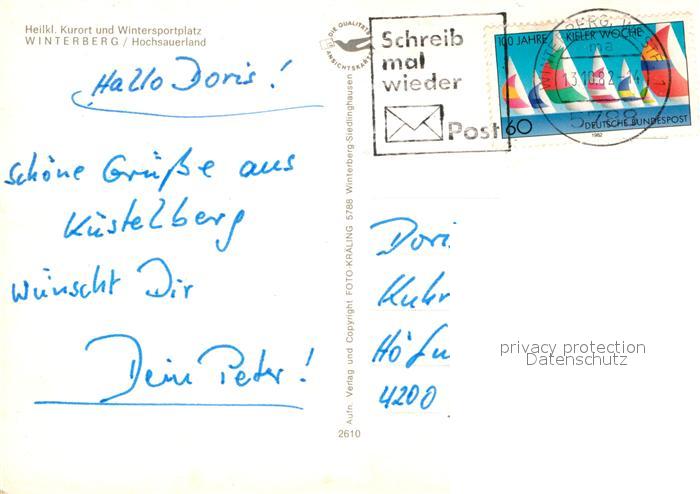 Heilkl. Kurort und Wintersportplatz
WINTERBERG / Hochsauerland
Hallo Doris!
schöne Grüße aus
Küstelberg
wünscht Dir
Dein Peter!
DIE QUALITÄTS
ANSICHTSKARTE
Aufn. Verlag und Copyright FOTO-KRÄLING 5788 Winterberg-Siedlinghausen
2610
Schreib
mal
wieder
Post
100 JAHRE KIELER WOCHE
60
DEUTSCHE BUNDESPOST
1982
WINTERBERG, WESTF
ma
13.10.82
5788
Dori
Kuhr
4200
privacy protection
Datenschutz